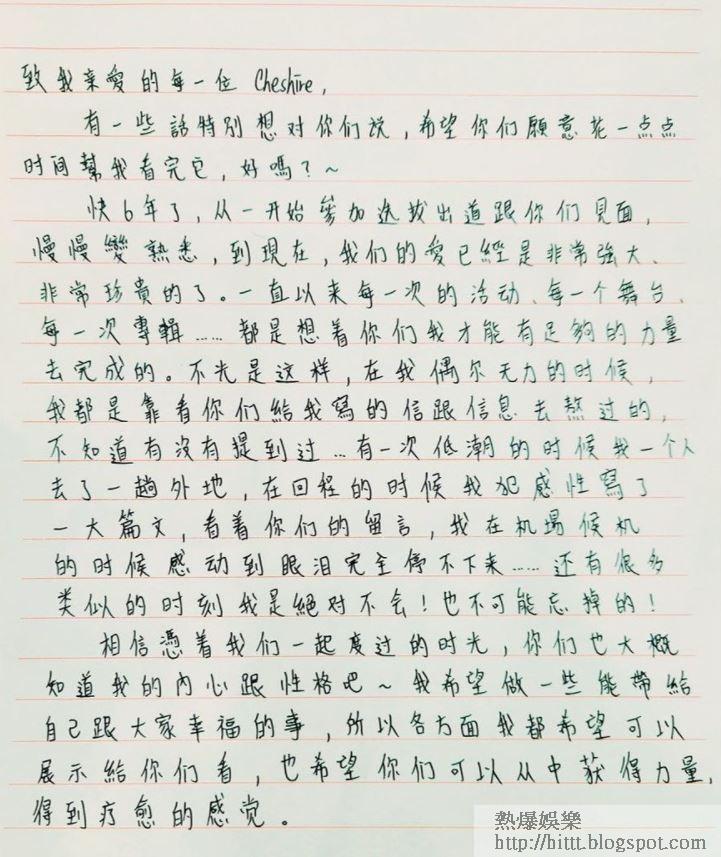 致我亲愛的每一位 Cheshire,
有一些話特別想对你们说，希望你们願意花一点点
时间幫我看完它，好嗎？~
快6年了，从一开始參加选拔出道跟你们見面，
慢慢變熟悉，到現在，我们的愛已經是非常強大、
非常珍貴的了。一直以来每一次的活动、每一个舞台、
每一次專輯……都是想着你们我才能有足夠的力量
去完成的。不光是这样，在我偶尔无力的时候，
我都是靠着你们給我寫的信跟信息去熬过的，
不知道有沒有提到过…有一次低潮的时候我一个人
去了一趟外地，在回程的时候我犯感性寫了
一大篇文，看着你们的留言，我在机場候机
的时候感动到眼泪完全停不下来……还有很多
类似的时刻我是絕对不会！也不可能忘掉的！
相信憑着我们一起度过的时光，你们也大概
知道我的內心跟性格吧~我希望做一些能帶給
自己跟大家幸福的事，所以各方面我都希望可以
展示給你们看，也希望你们可以从中获得力量，
得到疗愈的感觉。
熱爆娛樂
http://hittt.blogspot.com